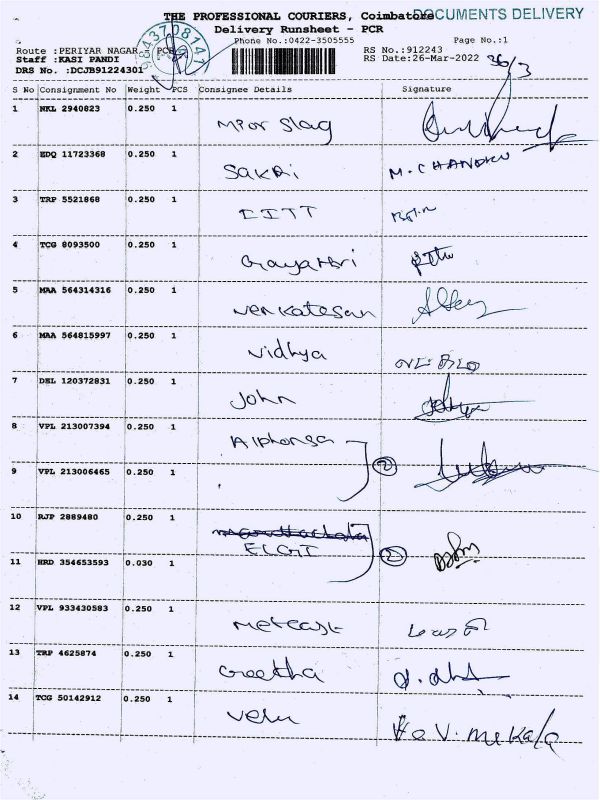 THE PROFESSIONAL COURIERS, Coimbatore DOCUMENTS DELIVERY
Delivery Runsheet - PCR
Phone No.:0422-3505555 Page No.:1
Route :PERIYAR NAGAR PCR RS No.:912243
Staff :KASI PANDI RS Date:26-Mar-2022
DRS No. :DCJB91224301 26/3
S No Consignment No Weight PCS Consignee Details Signature
1 NKL 2940823 0.250 1
2 EDQ 11723368 0.250 1 Sakai M. CHANDRU
3 TRP 5521868 0.250 1
4 TCG 8093500 0.250 1 Gayathri
5 MAA 564314316 0.250 1 Venkatesan
6 MAA 564815997 0.250 1 Vidhya
7 DEL 120372831 0.250 1 John
8 VPL 213007394 0.250 1 Alphonsa 2
9 VPL 213006465 0.250 1
10 RJP 2889480 0.250 1
ELGI 2
11 HRD 354653593 0.030 1
12 VPL 933430583 0.250 1
13 TRP 4625874 0.250 1 Geetha
14 TCG 50142912 0.250 1 Velu V. Mekala